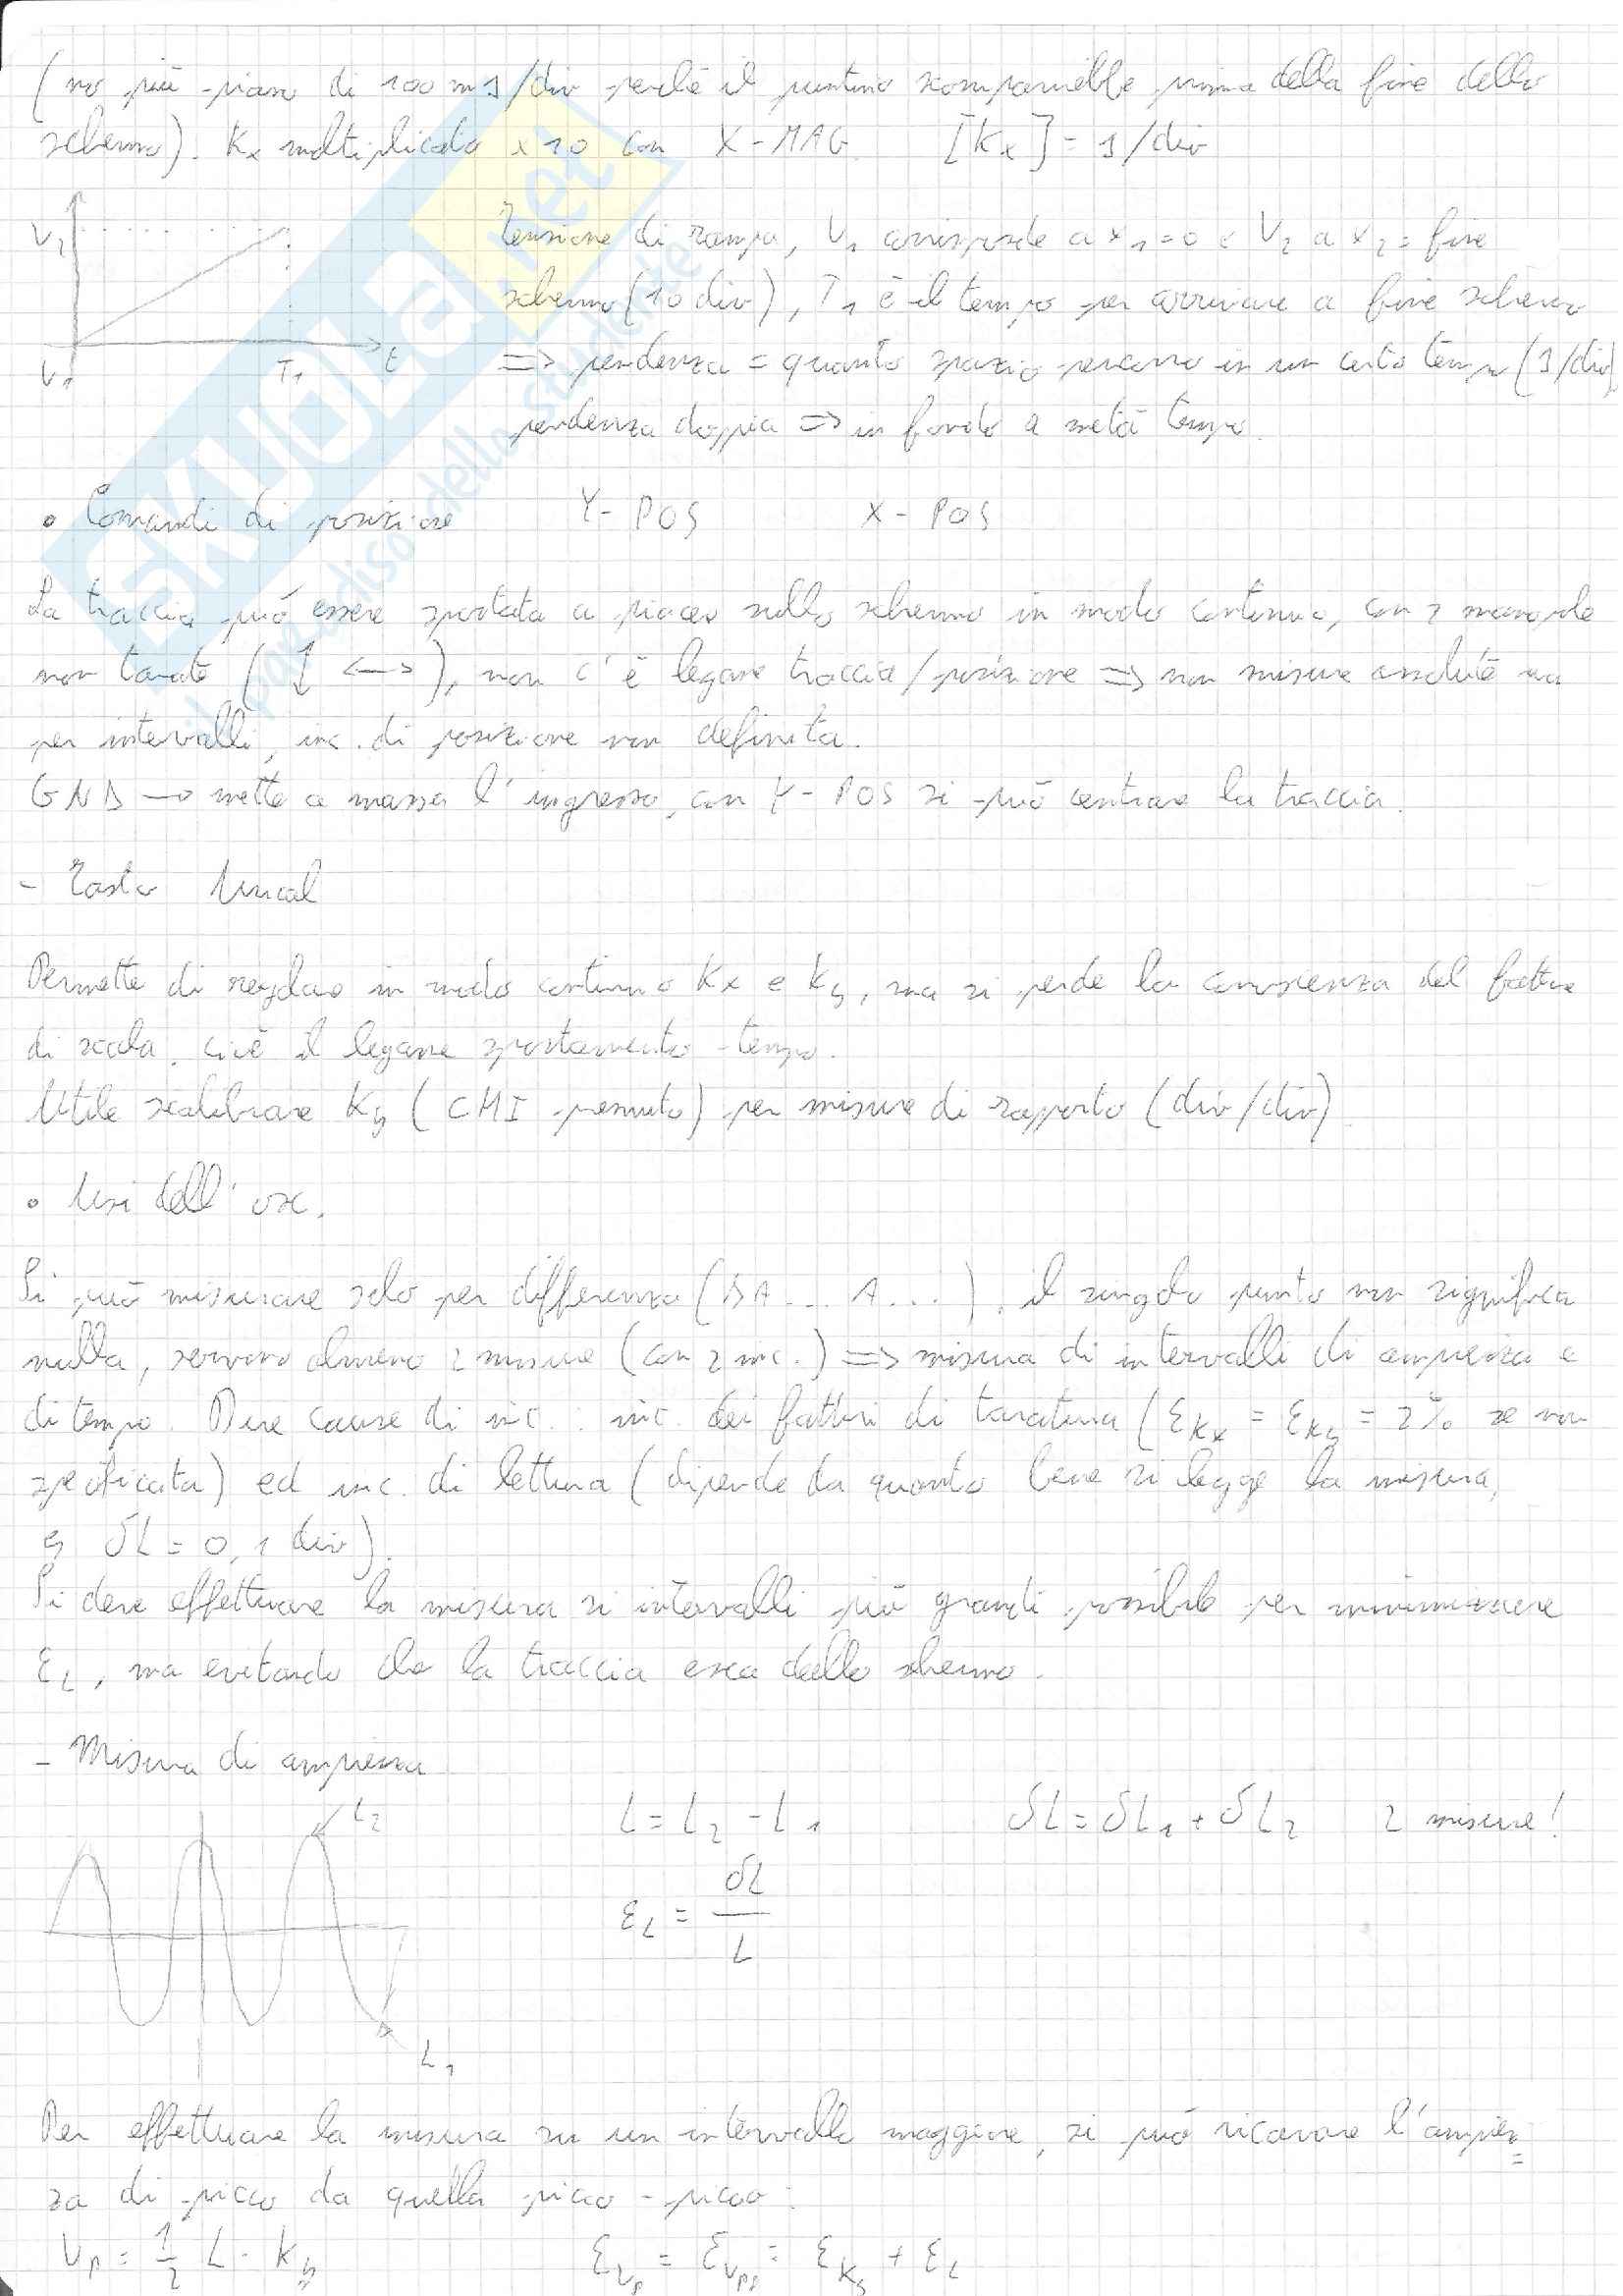 (no più piano di 100 ms/div perché il puntino scomparirebbe prima della fine dello
schermo). Kx moltiplicato x10 con X-MAG. [Kx] = s/div
V2
V1 T1 t
Tensione di rampa, V1 corrisponde a x1=0 e V2 a x2 = fine
schermo (10 div), T1 è il tempo per arrivare a fine schermo
=> pendenza = quanto spazio percorro in un certo tempo (s/div)
pendenza doppia => in fondo a metà tempo.
• Comandi di posizione Y-POS X-POS
La traccia può essere spostata a piacere sullo schermo in modo continuo, con 2 manopole
non tarate (↕ <-->), non c'è legame traccia/posizione => non misure assolute ma
per intervalli, inc. di posizione non definita.
GND → mette a massa l'ingresso, con Y-POS si può centrare la traccia.
- Tasto Uncal
Permette di regolare in modo continuo Kx e Ky, ma si perde la conoscenza del fattore
di scala, cioè il legame spostamento-tempo.
Utile scalibrare Ky (CMI premuto) per misure di rapporto (div/div).
• Usi dell'osc.
Si può misurare solo per differenza (DA... A...), il singolo punto non significa
nulla, servono almeno 2 misure (con 2 inc.) => misura di intervalli di ampiezza e
di tempo. Due cause di inc.: inc. dei fattori di taratura (εKx = εKy = 2% se non
specificata) ed inc. di lettura (dipende da quanto bene si legge la misura,
δL = 0,1 div).
Si deve effettuare la misura su intervalli più grandi possibile per minimizzare
εL, ma evitando che la traccia esca dallo schermo.
- Misura di ampiezza
L2
L = L2 - L1 δL = δL1 + δL2 2 misure!
εL = δL / L
L1
Per effettuare la misura su un intervallo maggiore, si può ricavare l'ampiez=
za di picco da quella picco-picco:
Vp = 1/2 L · Ky εVp = εVpp = εKy + εL
il paradiso dello studente
SKUOLA.net